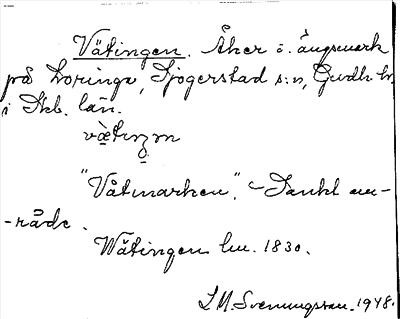 Vätingen. Åker o. ängsmark
på Loringa, Sjogerstad s:n, Gudh. hr.
i Skb. län.
vætiŋən
"Våtmarken". – Sankt om-
-råde.
Wätingen lm. 1830.
L M. Svenungsson. 1948.